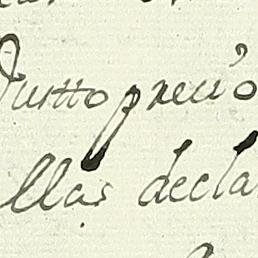 Justto precio
llas decla